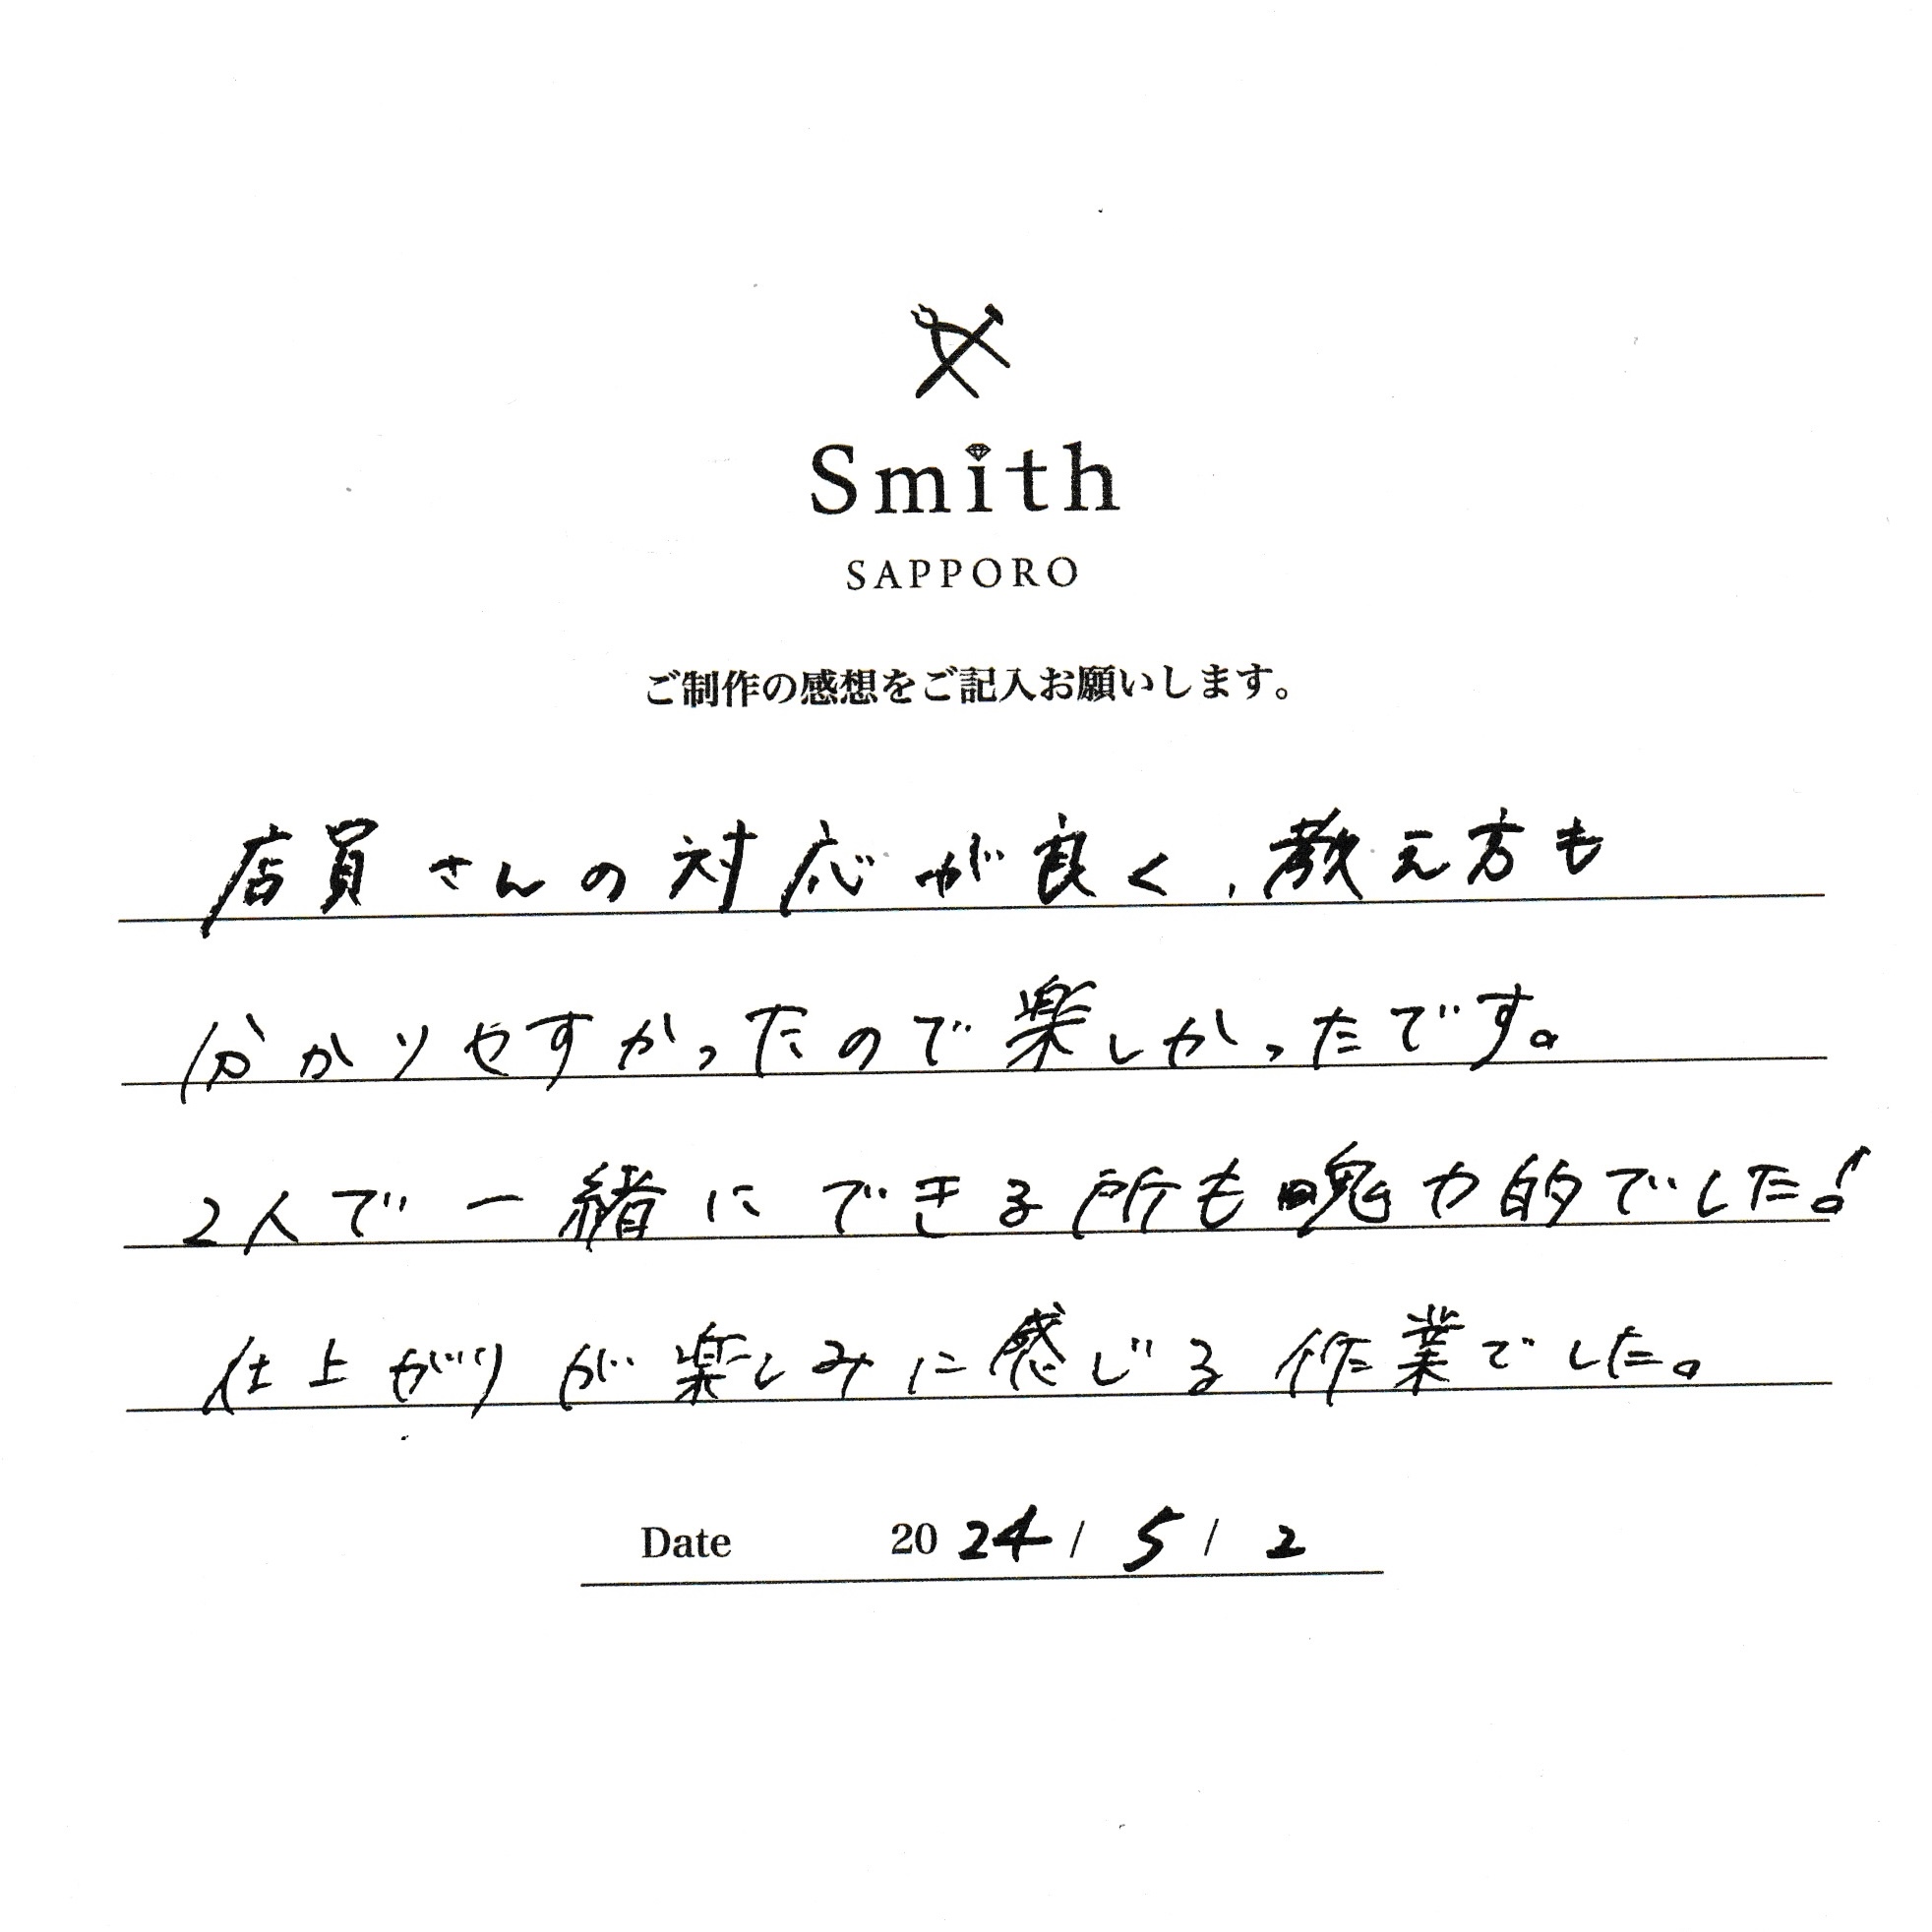 Smith
SAPPORO
ご制作の感想をご記入お願いします。
店員さんの対応が良く、教え方も
分かりやすかったので楽しかったです。
2人で一緒にできる所も魅力的でした!
仕上がりが楽しみに感じる作業でした。
Date 2024 / 5 / 2